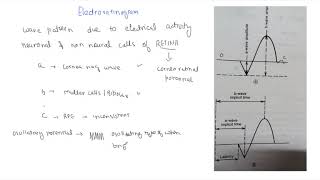 Electroretinogram
wave pattern due to electrical activity
neuronal & non neural cells of RETINA
a → Cornea neg wave
corneoretinal
potential
b → muller cells / Bipolar
C → RPE → inconsistent
oscillatory potential →
oscillating when
a-wave amplitude
b-wave
O
C
A
b-wave
implicit time
a-wave
implicit time
Latency
B